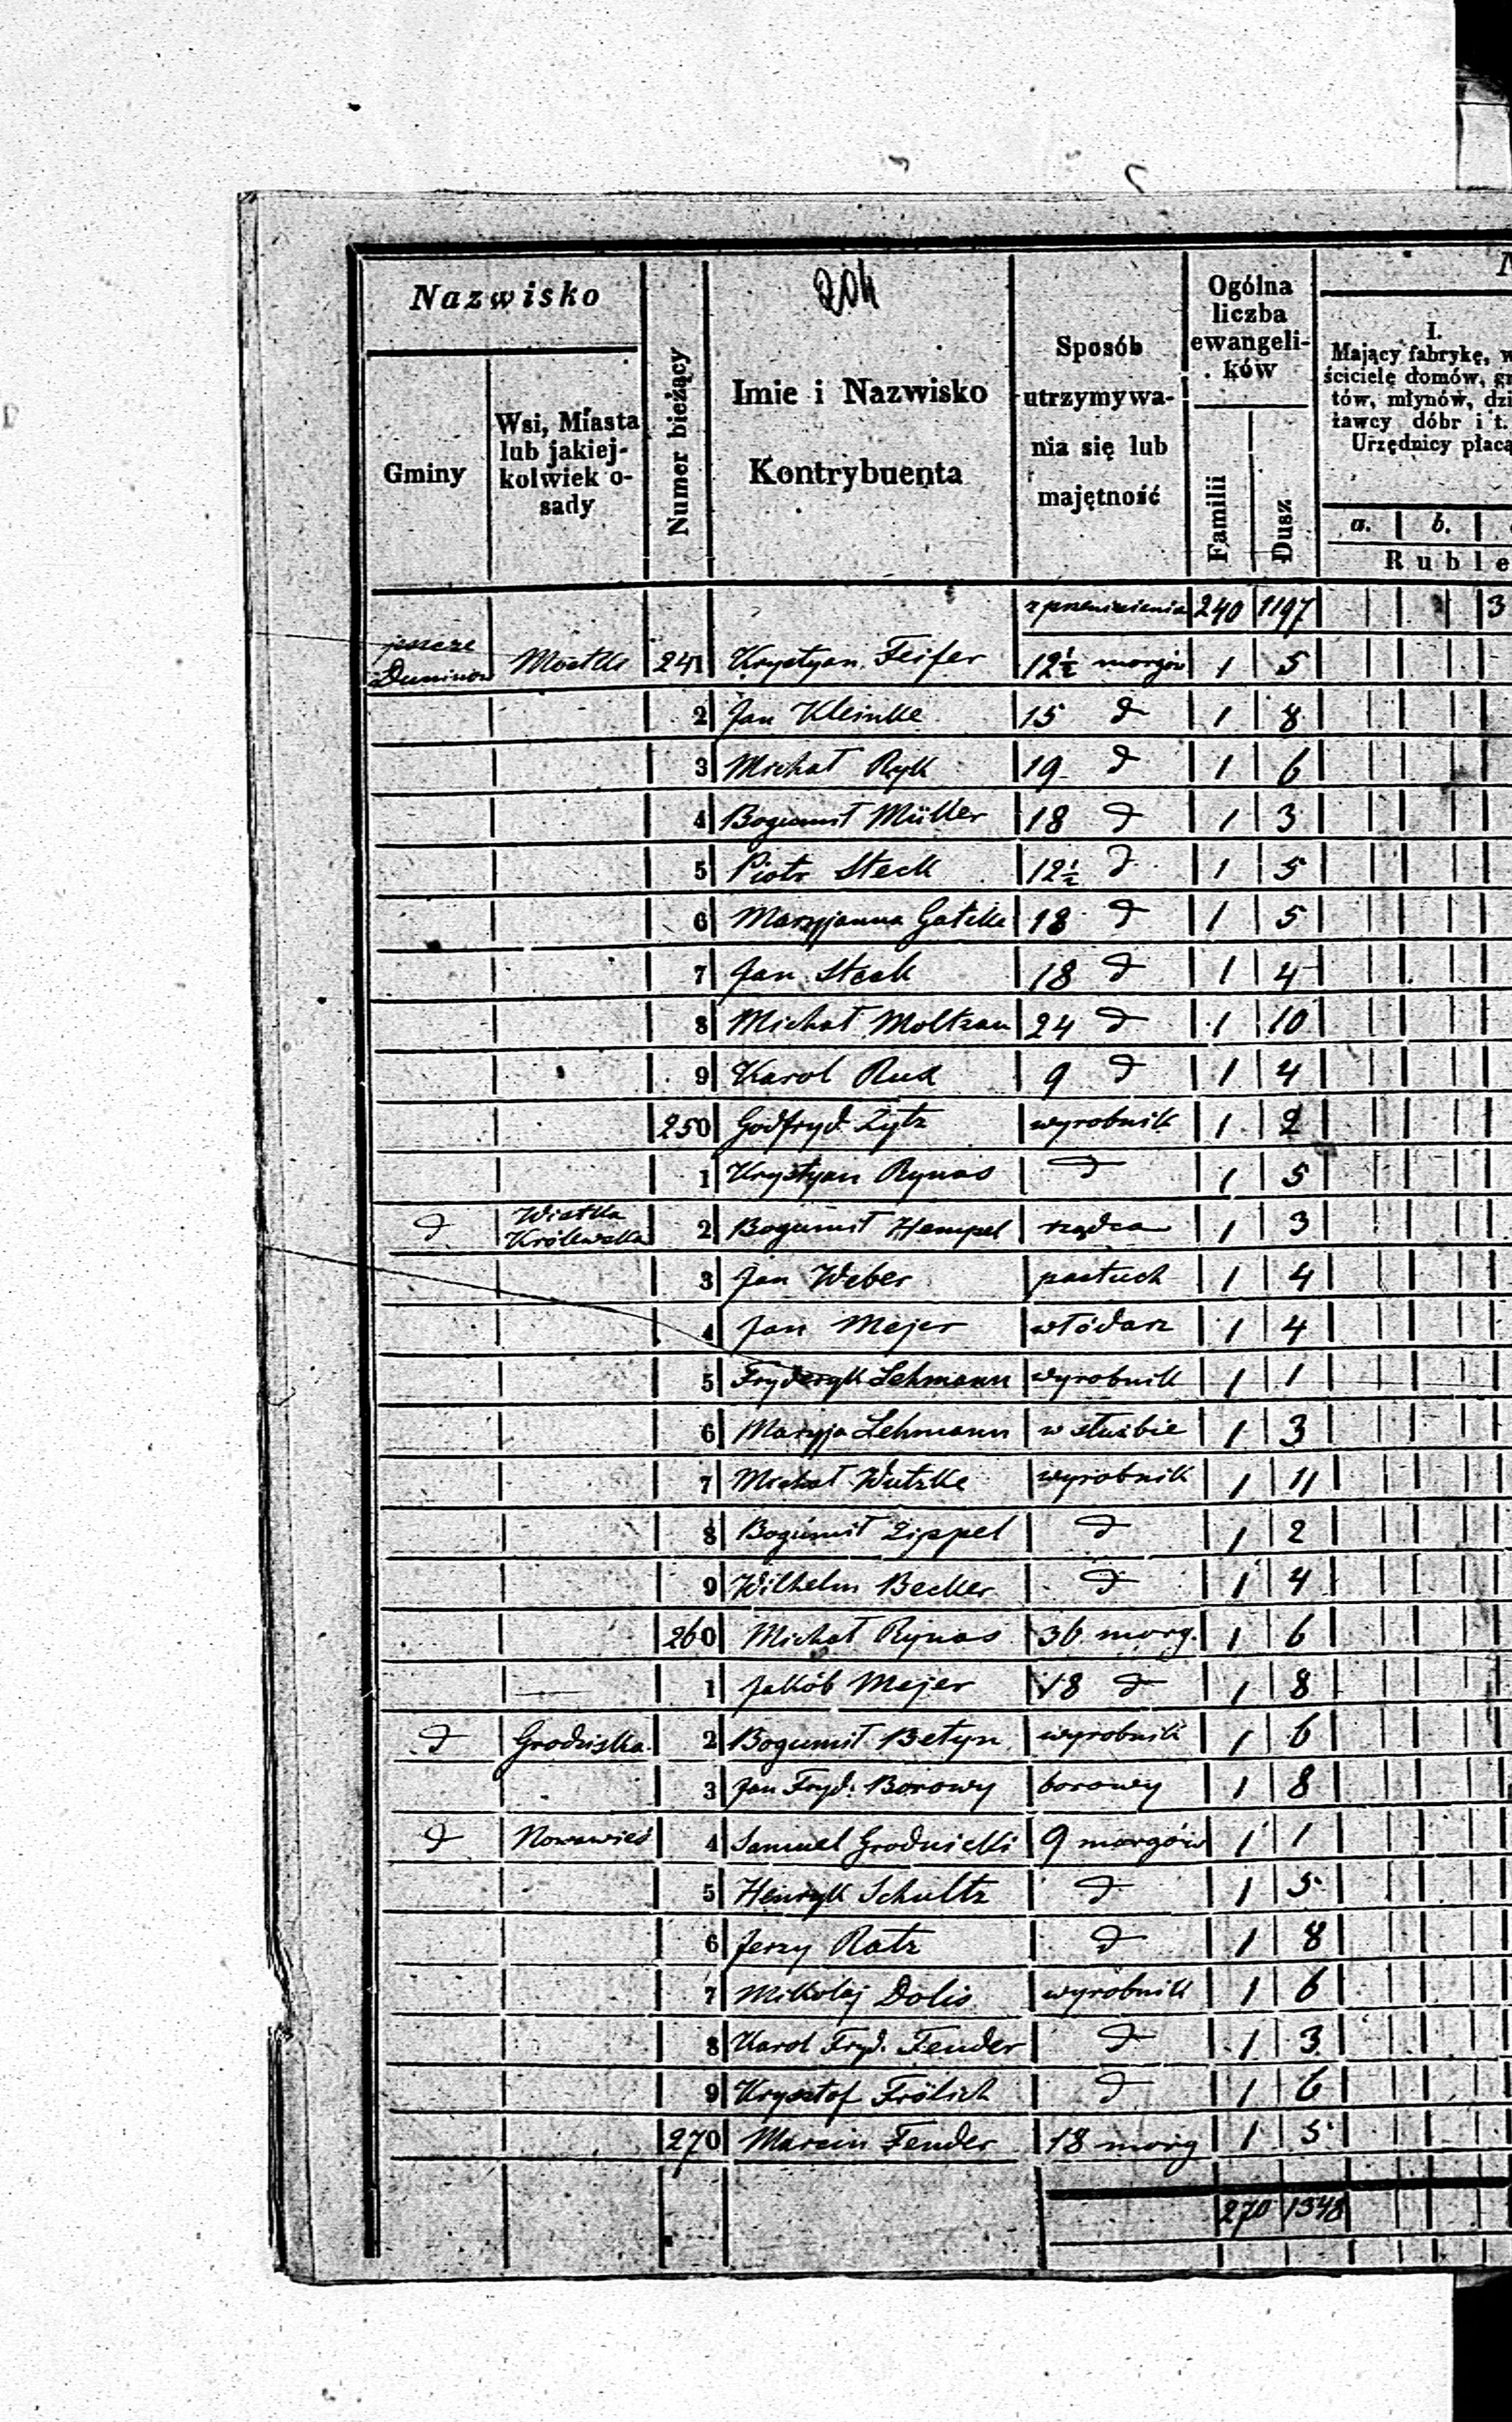 204
Nazwisko
Gminy
Wsi, Miasta
lub jakiej-
kolwiek o-
sady
Numer bieżący
Imie i Nazwisko
Kontrybuenta
Sposób
utrzymywa-
nia się lub
majętność
Ogólna
liczba
ewangeli-
ków
Familii
Dusz
I.
Mający fabrykę, w
ściciele domów, gr
tów, młynów, dzi
żawcy dóbr i t.
Urzędnicy płacą
a. b.
Ruble
z przeniesienia 240 1197 3
jeszcze
Duninów Mostki 241 Krystyan Feifer 12½ morgów 1 5
2 Jan Kleinke 15 d 1 8
3 Michał Ryk 19 d 1 6
4 Bogumił Müller 18 d 1 3
5 Piotr Steck 12½ d 1 5
6 Maryjanna Gatzke 18 d 1 5
7 Jan Steck 18 d 1 4
8 Michał Moltzau 24 d 1 10
9 Karol Rux 9 d 1 4
250 Godfryd Zytz wyrobnik 1 2
1 Krystyan Rynas d 1 5
d Wistka
Królewska 2 Bogumił Hempel rządca 1 3
3 Jan Weber pastuch 1 4
4 Jan Mejer włódarz 1 4
5 Fryderyk Lehmann wyrobnik 1 1
6 Maryja Lehmann w służbie 1 3
7 Michał Wutzke wyrobnik 1 11
8 Bogumił Zippel d 1 2
9 Wilhelm Becker d 1 4
260 Michał Rynas 36 morg. 1 6
1 Jakób Mejer 18 d 1 8
d Grodziska 2 Bogumił Betyn wyrobnik 1 6
3 Jan Fryd. Borowy borowy 1 8
d Nowawieś 4 Samuel Grodnicki 9 morgów 1 1
5 Henryk Schultz d 1 5
6 Jerzy Ratz d 1 8
7 Mikołaj Dolis wyrobnik 1 6
8 Karol Fryd. Fender d 1 3
9 Krysztof Frölich d 1 6
270 Marcin Fender 18 morg 1 5
270 1348